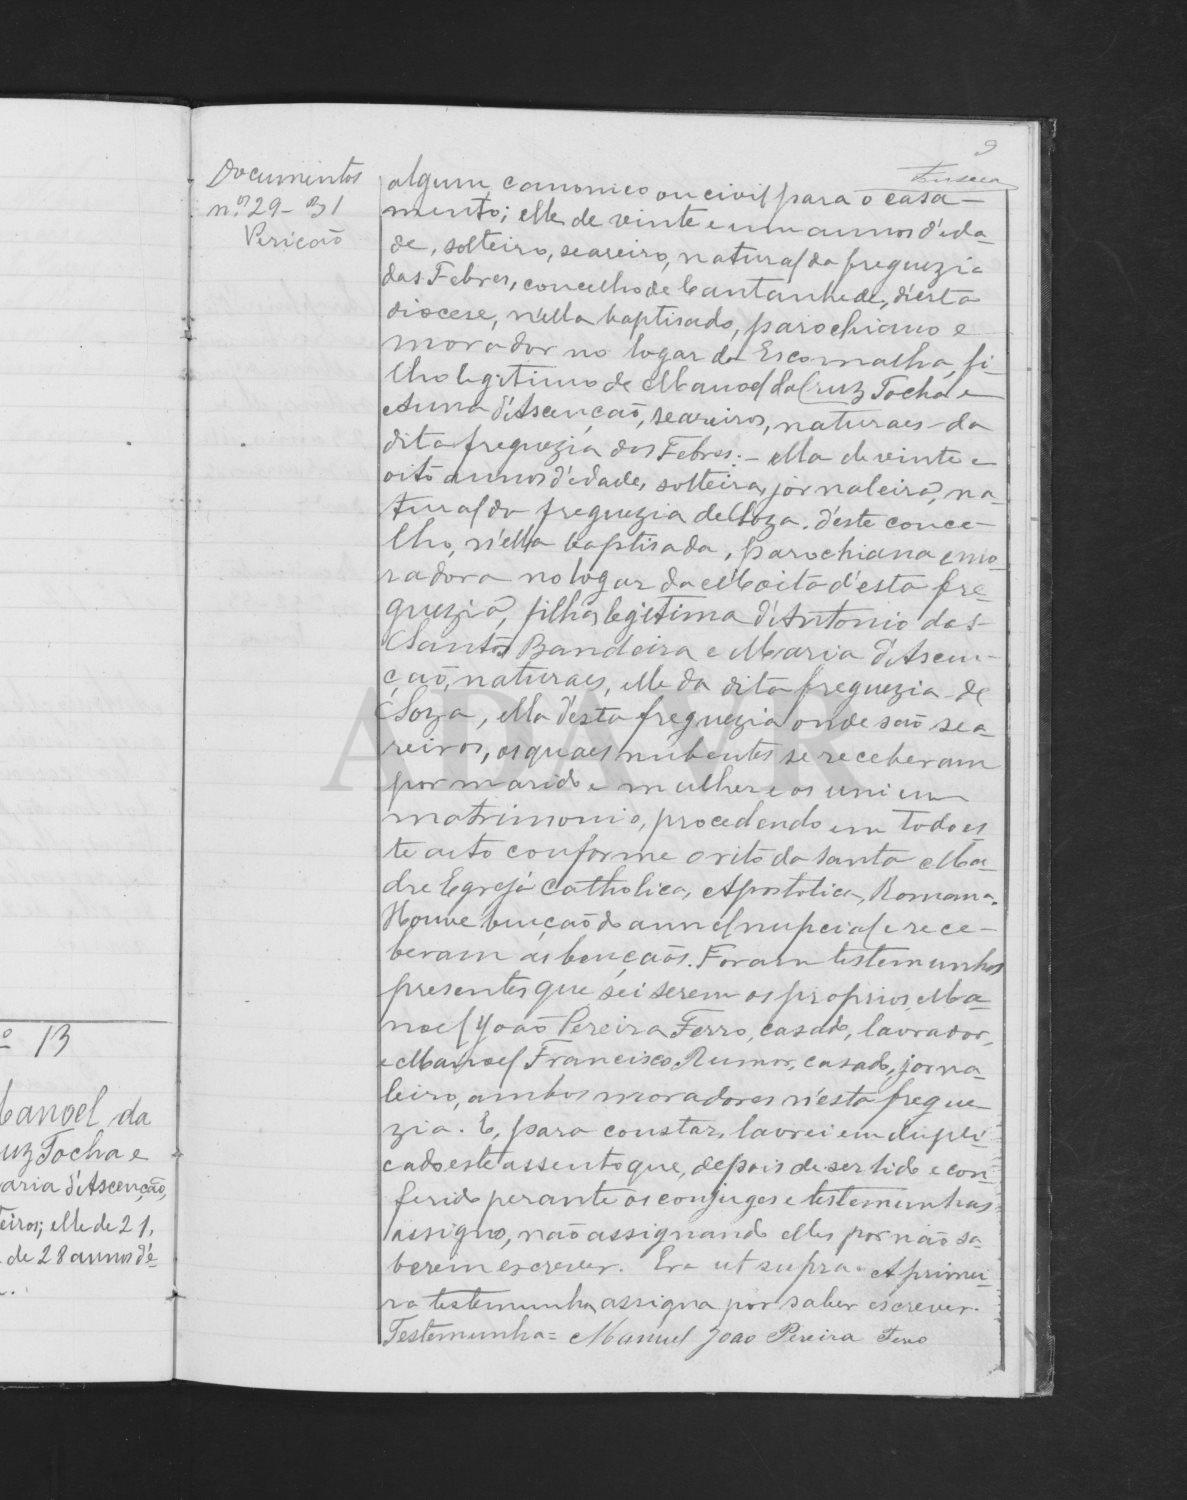 9
Documentos
n.os 29-31
algum canonico ou civil para o casa-
mento; elle de vinte e um annos d'ida-
de, solteiro, seareiro, natural da freguezia
das Febres, concelho de Cantanhede, d'esta
diocese, n'ella baptisado, parochiano e
morador no logar da Escornalha, fi-
lho legitimo de Manoel da Cruz Tocha e
Anna d'Ascenção, seareiros, naturaes da
dita freguezia das Febres; - ella de vinte e
oito annos d'edade, solteira, jornaleira, na-
tural da freguezia de Soza, d'este conce-
lho, n'ella baptisada, parochiana e mo-
radora no logar da Moita d'esta fre-
guezia, filha legitima d'Antonio dos
Santos Bandeira e Maria d'Ascen-
ção, naturaes, elle da dita freguezia de
Soza, ella d'esta freguezia onde são sea-
reiros, os quaes nubentes se receberam
por marido e mulher e os uni em
matrimonio, procedendo em todo es-
te acto conforme o rito da Santa Ma-
dre Egreja Catholica, Apostolica, Romana.
Houve benção do annel nupcial e rece-
beram as bençãos. Foram testemunhas
presentes que sei serem os proprios Ma-
noel João Pereira Ferro, casado, lavrador,
e Manoel Francisco Rumor, casado, jorna-
leiro, ambos moradores n'esta fregue-
zia. E, para constar, lavrei em dupli-
cado este assento que, depois de ser lido e con-
ferido perante os conjuges e testemunhas
assigno, não assignando elles por não sa-
berem escrever. Era ut supra. A primei-
ra testemunha assigna por saber escrever.
Testemunha = Manuel João Pereira Ferro
ADAVR
º 13
Manoel da
uz Tocha e
aria d'Ascenção,
teiros; elle de 21,
de 28 annos d'e-